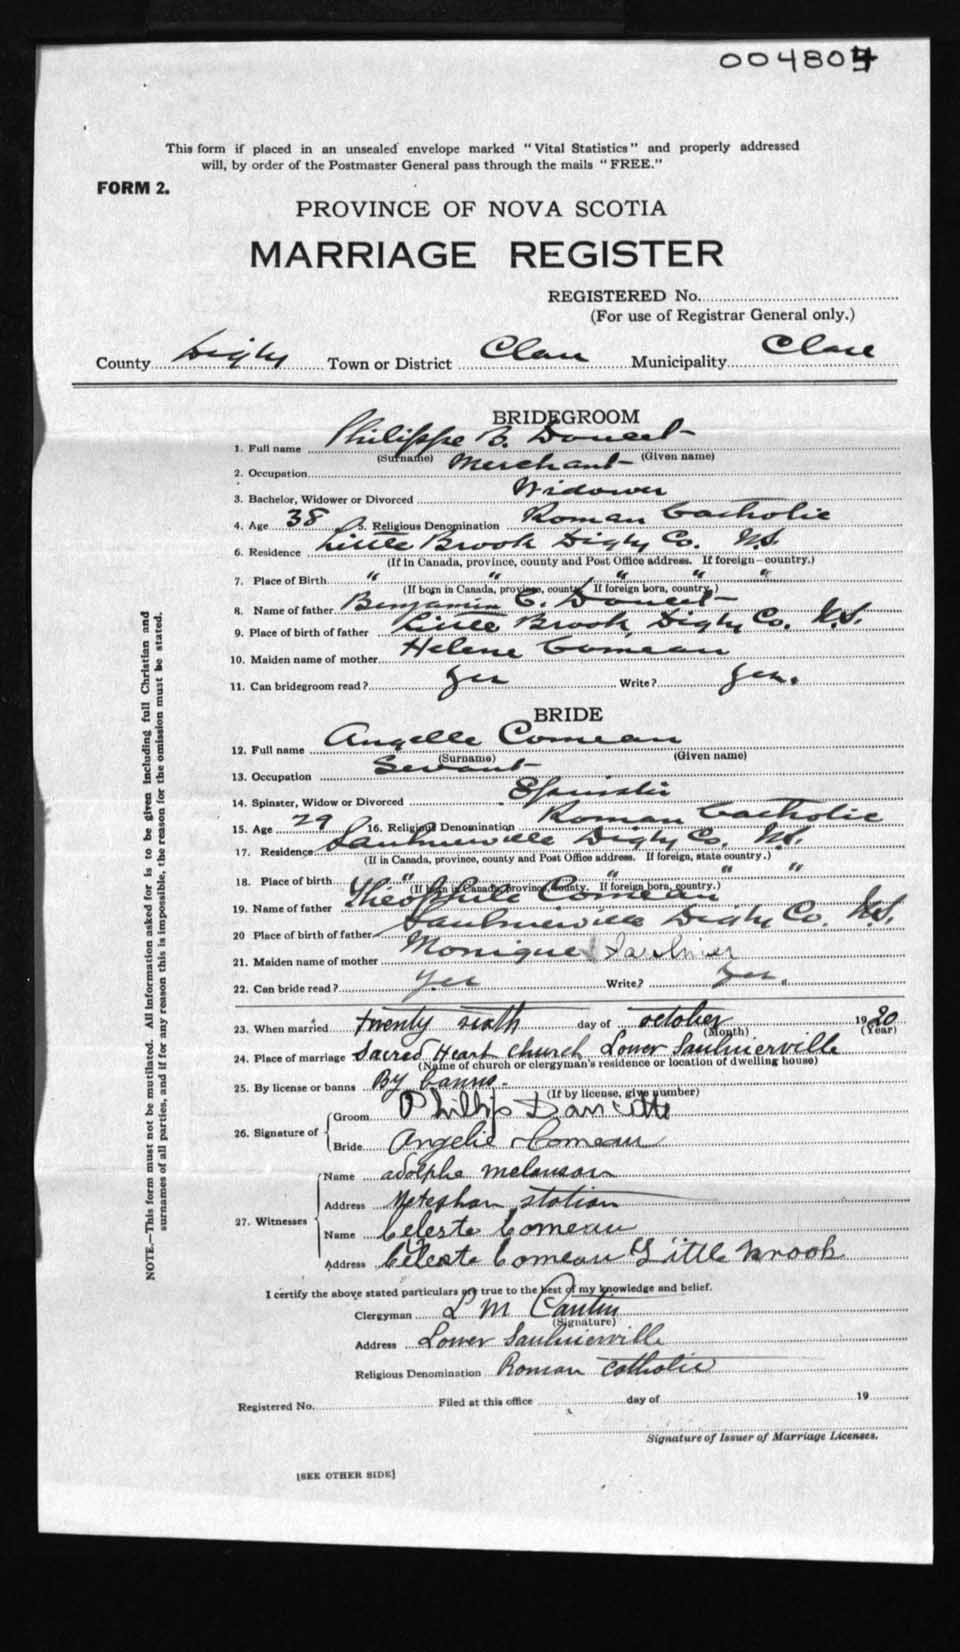 004804
This form if placed in an unsealed envelope marked "Vital Statistics" and properly addressed
will, by order of the Postmaster General pass through the mails "FREE."
FORM 2.
PROVINCE OF NOVA SCOTIA
MARRIAGE REGISTER
REGISTERED No.
(For use of Registrar General only.)
County Digby Town or District Clare Municipality Clare
BRIDEGROOM
1. Full name Philippe B. Doucet
(Surname) (Given name)
2. Occupation Merchant
3. Bachelor, Widower or Divorced Widower
4. Age 38 5. Religious Denomination Roman Catholic
6. Residence Little Brook Digby Co. N.S.
(If in Canada, province, county and Post Office address. If foreign—country.)
7. Place of Birth " " " " "
(If born in Canada, province, county. If foreign born, country.)
8. Name of father Benjamin C. Doucet
9. Place of birth of father Little Brook, Digby Co. N.S.
10. Maiden name of mother Helene Comeau
11. Can bridegroom read? Yes Write? Yes.
BRIDE
12. Full name Angelle Comeau
(Surname) (Given name)
13. Occupation Sevant
14. Spinster, Widow or Divorced Spinster
15. Age 29 16. Religious Denomination Roman Catholic
17. Residence Saulnierville Digby Co. N.S.
(If in Canada, province, county and Post Office address. If foreign, state country.)
18. Place of birth " " " "
(If born in Canada, province, county. If foreign born, country.)
19. Name of father Theophile Comeau
20 Place of birth of father Saulnierville Digby Co. N.S.
21. Maiden name of mother Monique Saulnier
22. Can bride read? Yes Write? Yes.
23. When married twenty sixth day of october 1920
(Month) (Year)
24. Place of marriage Sacred Heart church Lower Saulnierville
(Name of church or clergyman's residence or location of dwelling house)
25. By license or banns By banns.
(If by license, give number)
26. Signature of Groom Phillip Doucette
Bride Angelie Comeau
27. Witnesses Name adolphe melanson
Address Meteghan station
Name Celeste Comeau
Address Celeste Comeau Little Brook
I certify the above stated particulars are true to the best of my knowledge and belief.
Clergyman L M Cantin
(Signature)
Address Lower Saulnierville
Religious Denomination Roman Catholic
Registered No. Filed at this office day of 19
Signature of Issuer of Marriage Licenses.
[SEE OTHER SIDE]
NOTE.—This form must not be mutilated. All information asked for is to be given including full Christian and
surnames of all parties, and if for any reason this is impossible, the reason for the omission must be stated.